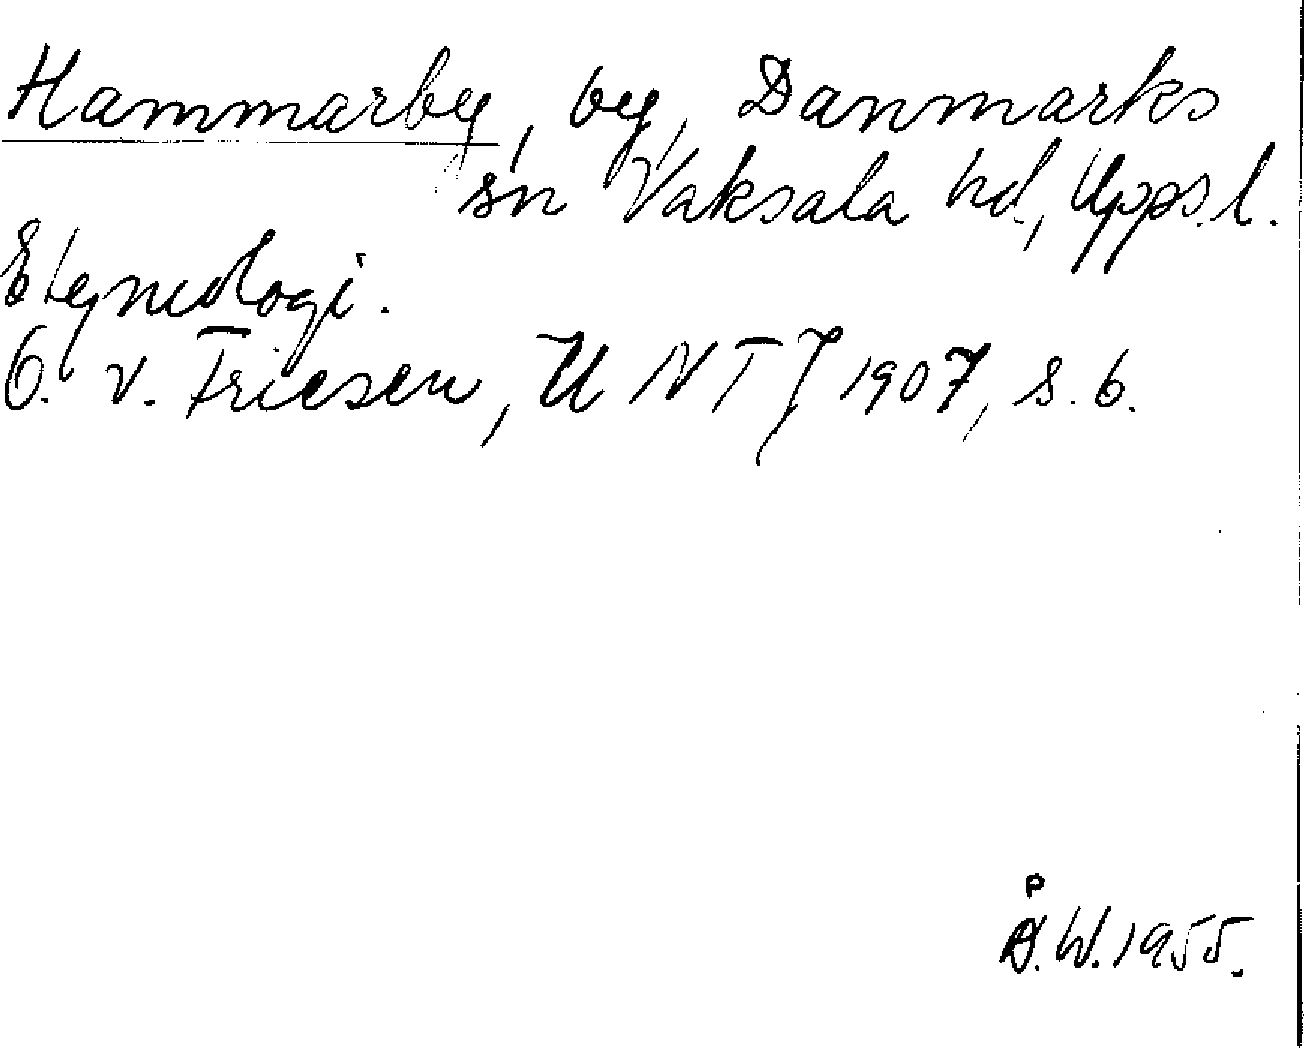 Hammarby, by, Danmarks
sn Vaksala hd, Upps.l.
Etymologi.
O. v. Friesen, UNTJ 1907, s. 6.
Å.W. 1955.